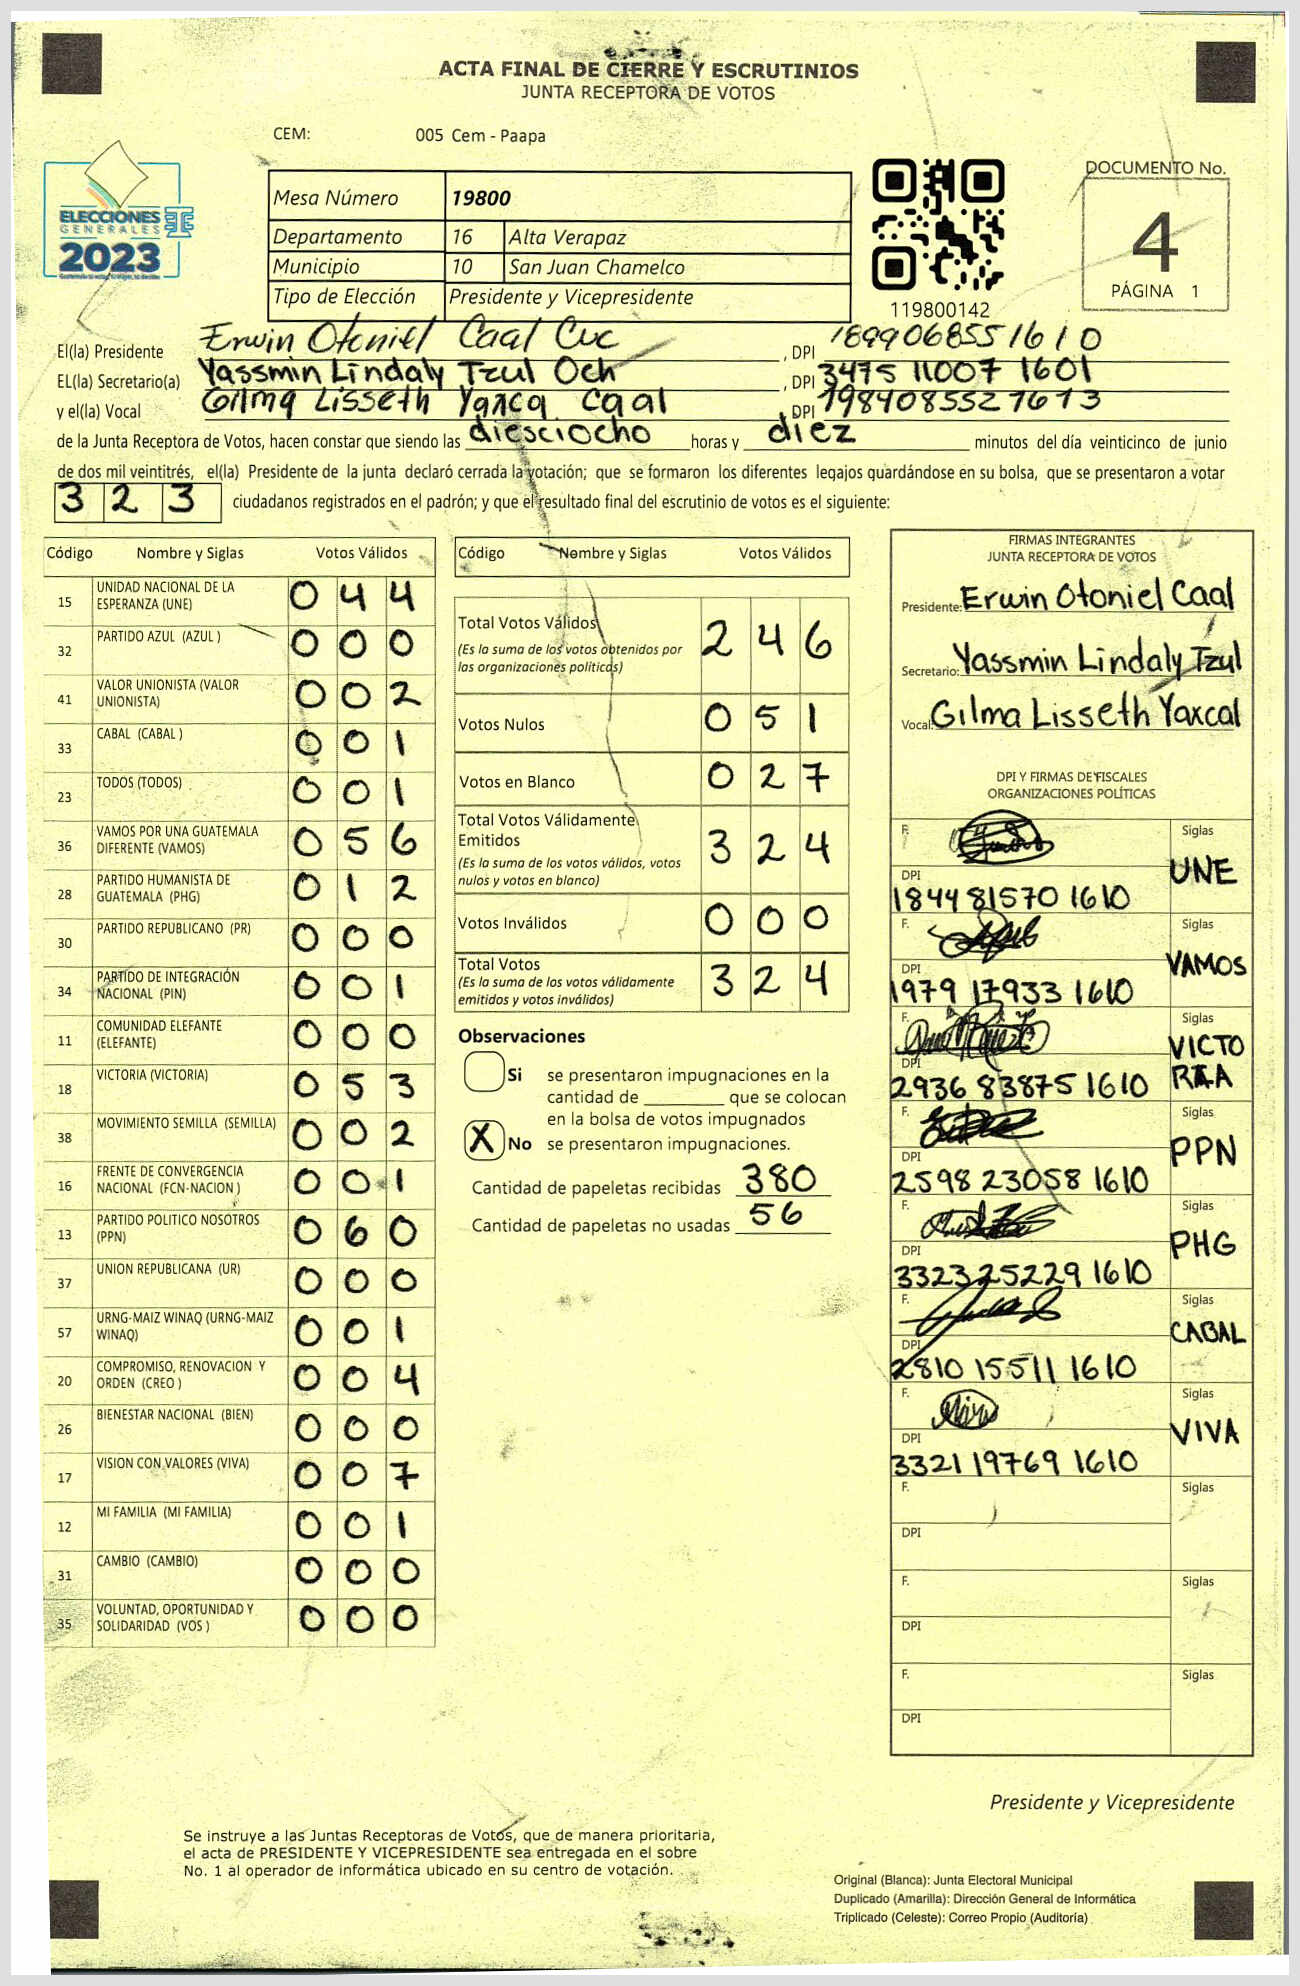 ACTA FINAL DE CIERRE Y ESCRUTINIOS
JUNTA RECEPTORA DE VOTOS
CEM: 005 Cem - Paapa
ELECCIONES
GENERALES
2023
Mesa Número 19800
Departamento 16 Alta Verapaz
Municipio 10 San Juan Chamelco
Tipo de Elección Presidente y Vicepresidente
119800142
DOCUMENTO No.
4
PÁGINA 1
El(la) Presidente Erwin Otoniel Caal Cuc , DPI 1899068551610
EL(la) Secretario(a) Yassmin Lindaly Tzul Och , DPI 3475 11007 1601
y el(la) Vocal Gilma Lisseth Yaxca Caal , DPI 1984085521613
de la Junta Receptora de Votos, hacen constar que siendo las diesciocho horas y diez minutos del día veinticinco de junio
de dos mil veintitrés, el(la) Presidente de la junta declaró cerrada la votación; que se formaron los diferentes legajos guardándose en su bolsa, que se presentaron a votar
3 2 3 ciudadanos registrados en el padrón; y que el resultado final del escrutinio de votos es el siguiente:
Código Nombre y Siglas Votos Válidos
15 UNIDAD NACIONAL DE LA ESPERANZA (UNE) 0 4 4
32 PARTIDO AZUL (AZUL ) 0 0 0
41 VALOR UNIONISTA (VALOR UNIONISTA) 0 0 2
33 CABAL (CABAL ) 0 0 1
23 TODOS (TODOS) 0 0 1
36 VAMOS POR UNA GUATEMALA DIFERENTE (VAMOS) 0 5 6
28 PARTIDO HUMANISTA DE GUATEMALA (PHG) 0 1 2
30 PARTIDO REPUBLICANO (PR) 0 0 0
34 PARTIDO DE INTEGRACIÓN NACIONAL (PIN) 0 0 1
11 COMUNIDAD ELEFANTE (ELEFANTE) 0 0 0
18 VICTORIA (VICTORIA) 0 5 3
38 MOVIMIENTO SEMILLA (SEMILLA) 0 0 2
16 FRENTE DE CONVERGENCIA NACIONAL (FCN-NACION ) 0 0 1
13 PARTIDO POLITICO NOSOTROS (PPN) 0 6 0
37 UNION REPUBLICANA (UR) 0 0 0
57 URNG-MAIZ WINAQ (URNG-MAIZ WINAQ) 0 0 1
20 COMPROMISO, RENOVACION Y ORDEN (CREO ) 0 0 4
26 BIENESTAR NACIONAL (BIEN) 0 0 0
17 VISION CON VALORES (VIVA) 0 0 7
12 MI FAMILIA (MI FAMILIA) 0 0 1
31 CAMBIO (CAMBIO) 0 0 0
35 VOLUNTAD, OPORTUNIDAD Y SOLIDARIDAD (VOS ) 0 0 0
Código Nombre y Siglas Votos Válidos
Total Votos Válidos 2 4 6
(Es la suma de los votos obtenidos por
las organizaciones políticas)
Votos Nulos 0 5 1
Votos en Blanco 0 2 7
Total Votos Válidamente
Emitidos 3 2 4
(Es la suma de los votos válidos, votos
nulos y votos en blanco)
Votos Inválidos 0 0 0
Total Votos 3 2 4
(Es la suma de los votos válidamente
emitidos y votos inválidos)
Observaciones
Si se presentaron impugnaciones en la
cantidad de ________ que se colocan
en la bolsa de votos impugnados
X No se presentaron impugnaciones.
Cantidad de papeletas recibidas 380
Cantidad de papeletas no usadas 56
FIRMAS INTEGRANTES
JUNTA RECEPTORA DE VOTOS
Presidente: Erwin Otoniel Caal
Secretario: Yassmin Lindaly Tzul
Vocal: Gilma Lisseth Yaxcal
DPI Y FIRMAS DE FISCALES
ORGANIZACIONES POLÍTICAS
F. Siglas
UNE
DPI
1844 81570 1610
F. Siglas
VAMOS
DPI
1979 17933 1610
F. Siglas
VICTO
RIA
DPI
2936 83875 1610
F. Siglas
PPN
DPI
2598 23058 1610
F. Siglas
PHG
DPI
3323 25229 1610
F. Siglas
CABAL
DPI
2810 15511 1610
F. Siglas
VIVA
DPI
3321 19769 1610
F. Siglas
DPI
F. Siglas
DPI
F. Siglas
DPI
Presidente y Vicepresidente
Se instruye a las Juntas Receptoras de Votos, que de manera prioritaria,
el acta de PRESIDENTE Y VICEPRESIDENTE sea entregada en el sobre
No. 1 al operador de informática ubicado en su centro de votación.
Original (Blanca): Junta Electoral Municipal
Duplicado (Amarilla): Dirección General de Informática
Triplicado (Celeste): Correo Propio (Auditoría)